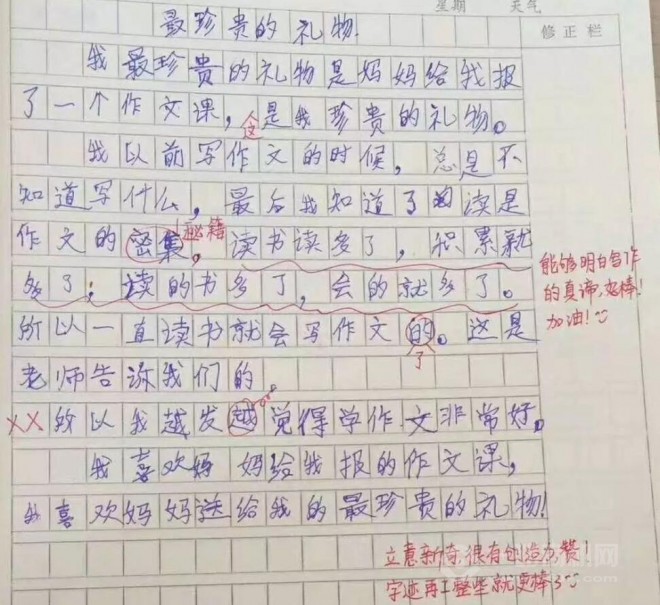 星期 天气
修正栏
最珍贵的礼物
我最珍贵的礼物是妈妈给我报
了一个作文课，这是我珍贵的礼物。
我以前写作文的时候，总是不
知道写什么，最后我知道了读是
作文的密集，秘籍 读书读多了，积累就
多了；读的书多了，会的就多了。
能够明白写作
的真谛，超棒！
加油！
所以一直读书就会写作文的。这是
了
老师告诉我们的
XX 致以我越发越觉得学作文非常好。
我喜欢妈妈给我报的作文课，
喜欢妈妈送给我的最珍贵的礼物！
立意新奇，很有创造力，赞！
字迹再工整些就更棒了